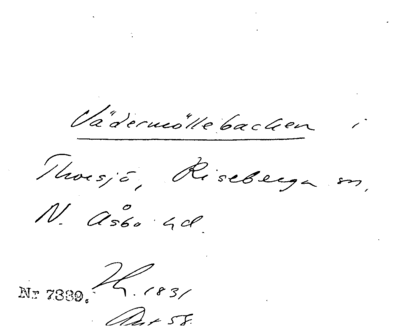 Vädermöllebacken i
Thorsjö, Riseberga sn,
N. Åsbo hd.
Nr 7339. 1831
Akt 58